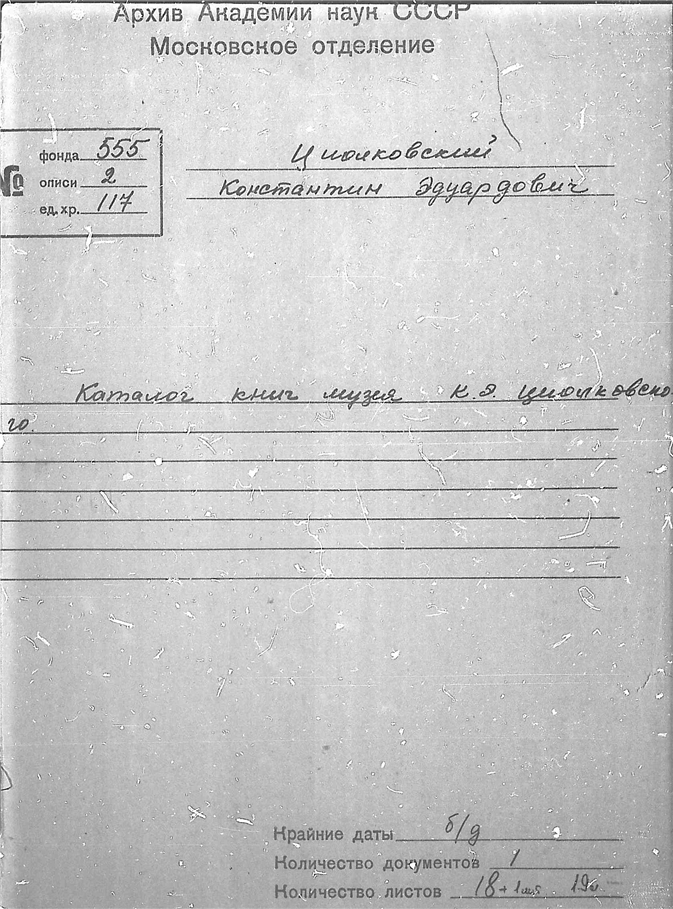 Архив Академии наук СССР
Московское отделение
№
фонда 555
описи 2
ед. хр. 117
Циолковский
Константин Эдуардович
Каталог книг музея К.Э. Циолковско-
го.
Крайние даты б/д
Количество документов 1
Количество листов 18+1